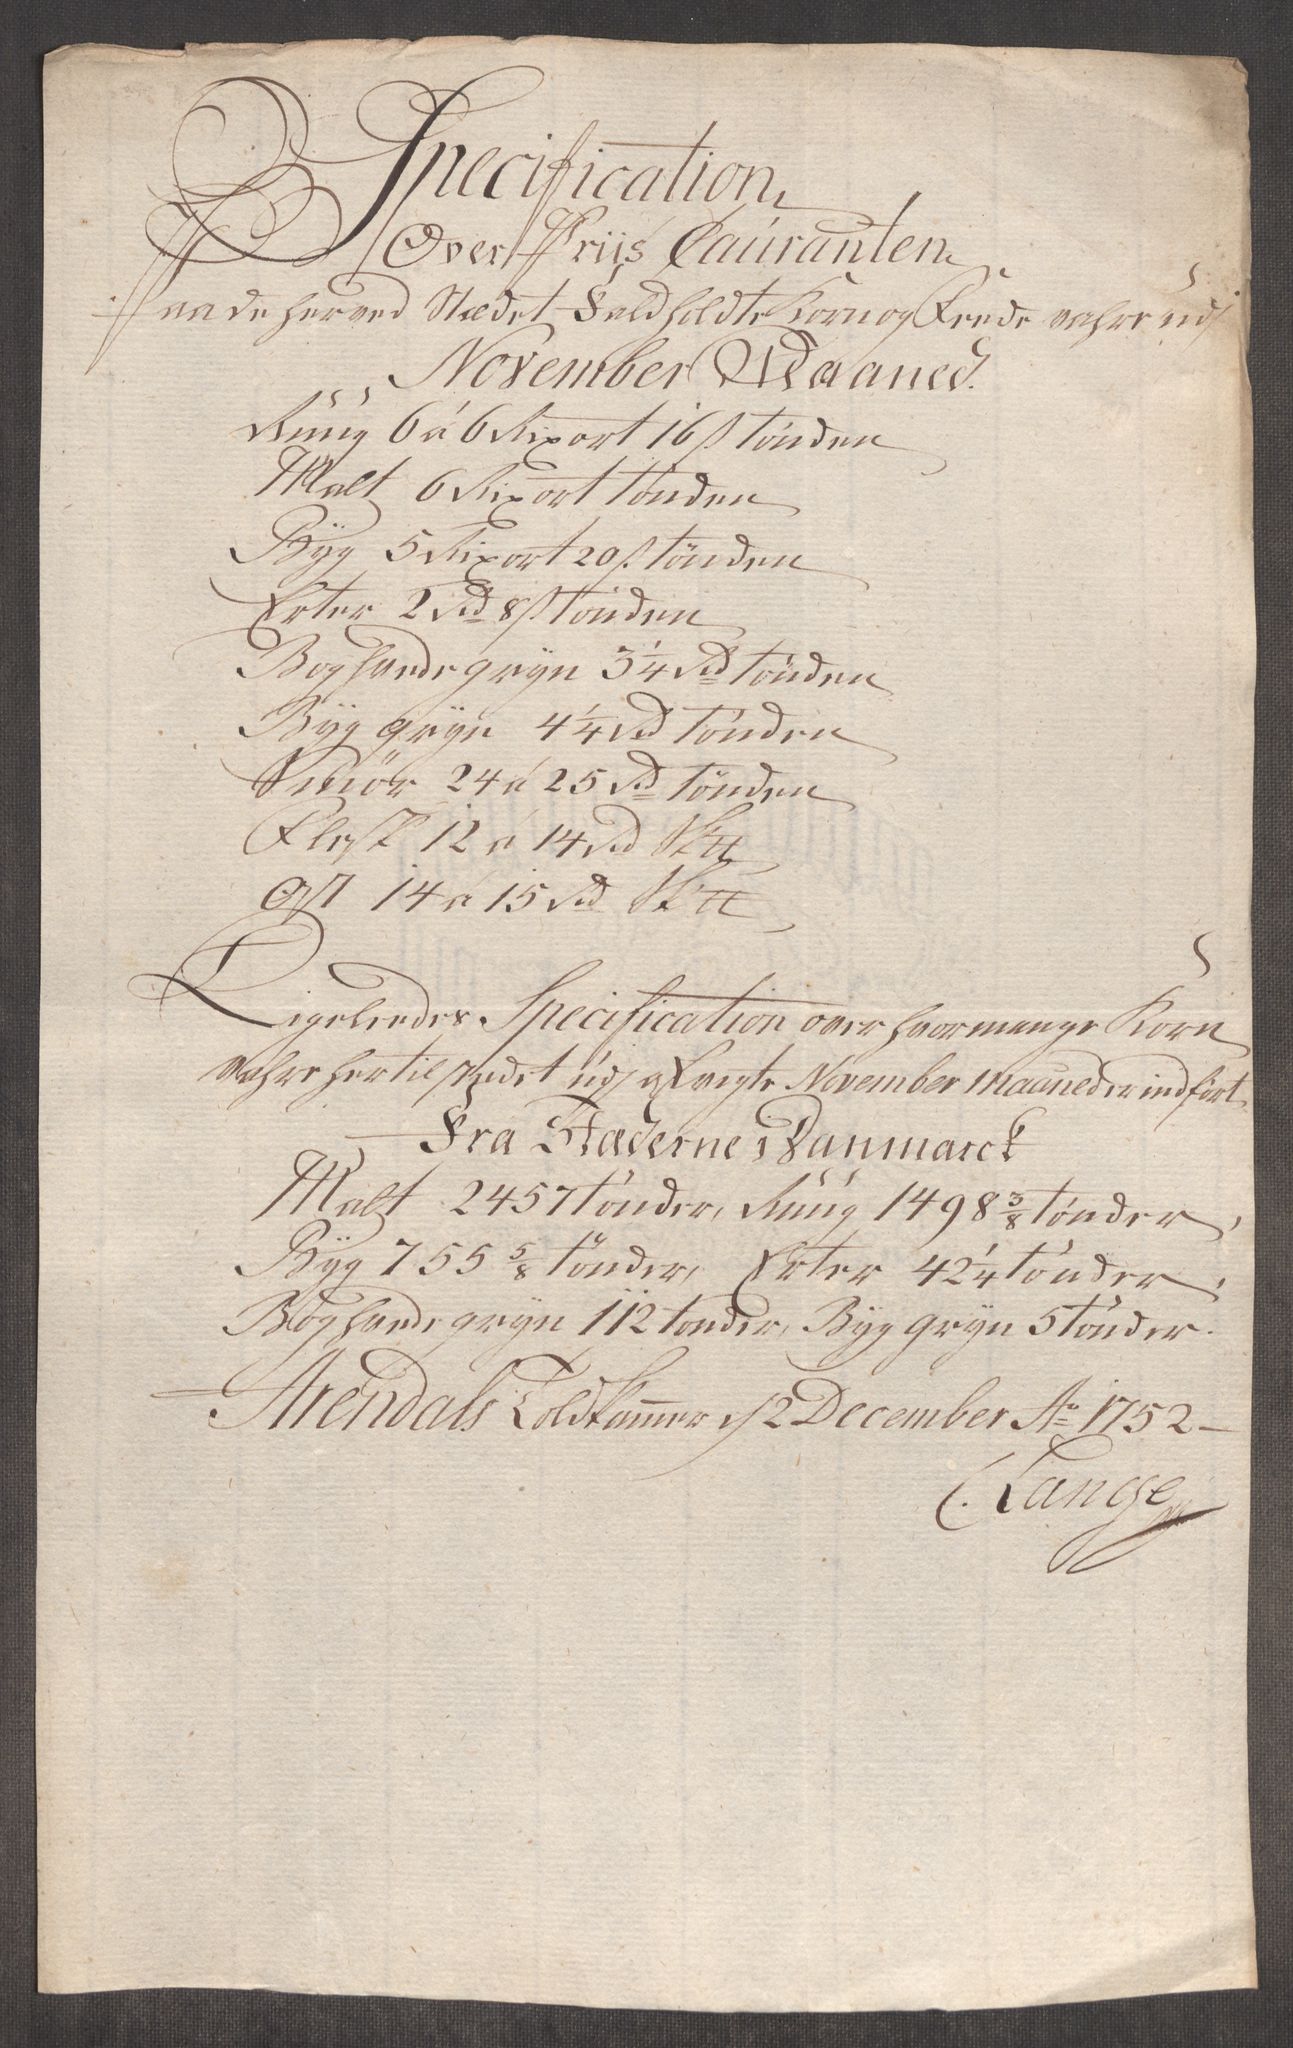 Specification
Over Priis Couranten
Paa de her ved Stædet Faldholdte Korn og Feede vahre udj
November Maaned.
Rúúg 6 á 6 Rixort 16 s tønden
Malt 6 Rixort tønden
Býg 5 Rixort 20 s. tønden
Erter 2 Rd 8 s tønden
Boghvede grÿn 3 1/4 Rd tønden
Bÿg grÿn 4 1/4 Rd tønden
Smiör 24 á 25 Rd tønden
Flesk 12 á 14 Rd Sk℔
Ost 14 á 15 Rd Sk℔
Ligeleedes Specification over hvor mange Korn
vahre her til stædet udj afvigte November maaned er indført
Fra Stæderne i Danmarck
Malt 2457 tønder, Rúúg 1498 3/8 tønder,
Bÿg 755 5/8 tønder, Erter 42 1/4 tønder,
Boghvede grÿn 112 tønder, Bÿg grÿn 5 tønder.
Arendals Toldkammer d 2 December Ao 1752
C. Lange